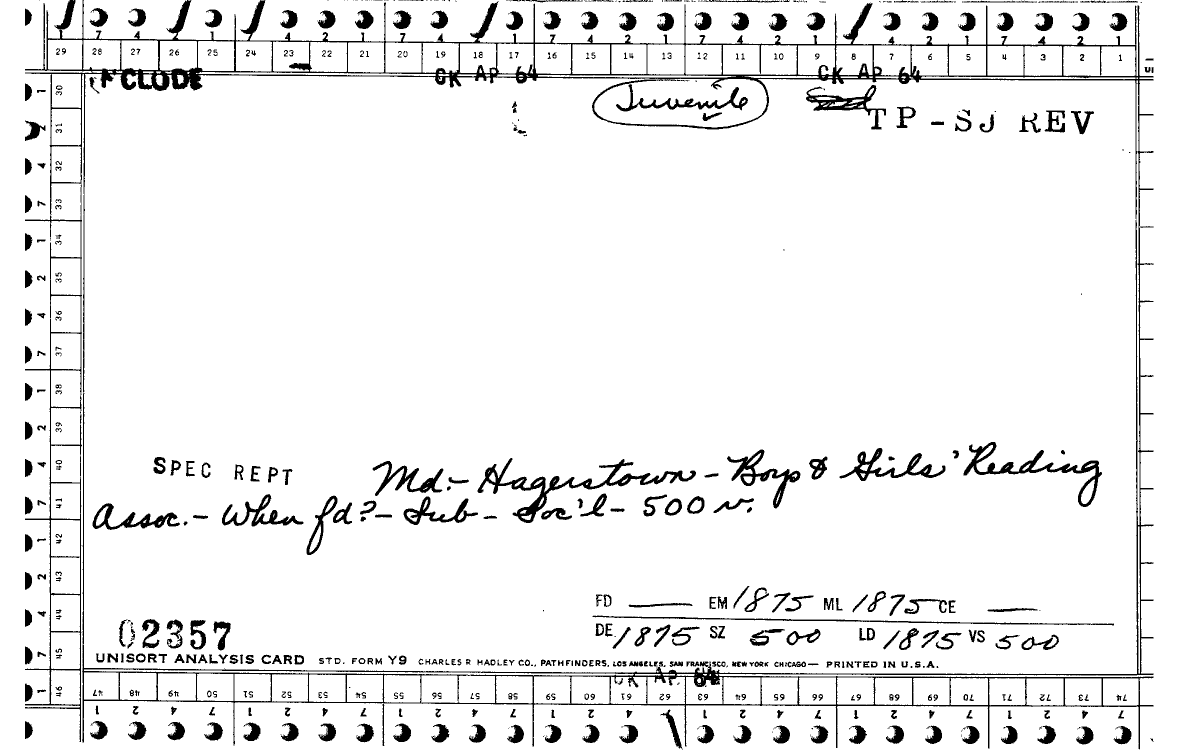 7 4 2 1 7 4 2 1 7 4 2 1 7 4 2 1 7 4 2 1 7 4 2 1 7 4 2 1
29 28 27 26 25 24 23 22 21 20 19 18 17 16 15 14 13 12 11 10 9 8 7 6 5 4 3 2 1
CLUDE CK AP 64 CK AP 64
Juvenile
TP-SJ REV
30
31
32
33
34
35
36
37
38
39
40
41
42
43
44
45
46
SPEC REPT Md.- Hagerstown - Boys & Girls' Reading
Assoc. - When fd? - Sub - Soc'l - 500 v.
FD — EM 1875 ML 1875 CE —
DE 1875 SZ 500 LD 1875 VS 500
02357
UNISORT ANALYSIS CARD STD. FORM Y9 CHARLES R HADLEY CO., PATHFINDERS, LOS ANGELES, SAN FRANCISCO, NEW YORK CHICAGO — PRINTED IN U.S.A.
CK AP 64
47 48 49 50 51 52 53 54 55 56 57 58 59 60 61 62 63 64 65 66 67 68 69 70 71 72 73 74
1 2 4 7 1 2 4 7 1 2 4 7 1 2 4 7 1 2 4 7 1 2 4 7 1 2 4 7